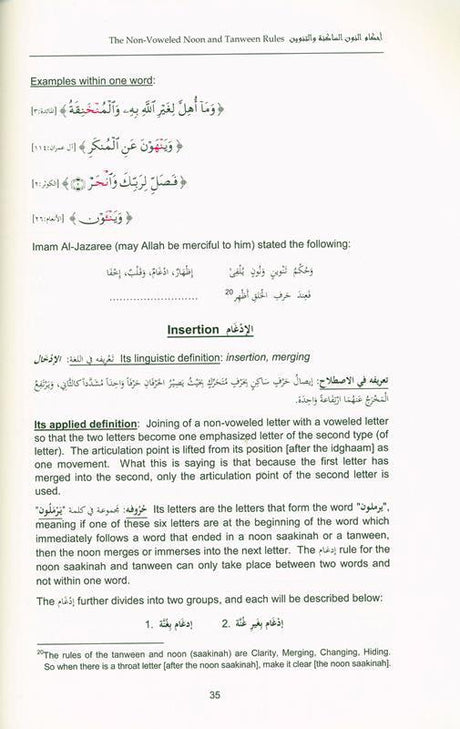 The Non-Voweled Noon and Tanween Rules أحكام النون الساكنة والتنوين
Examples within one word:
﴿ وَمَآ أُهِلَّ لِغَيْرِ ٱللَّهِ بِهِۦ وَٱلْمُنْخَنِقَةُ ﴾ [المائدة:٣]
﴿ وَيَنْهَوْنَ عَنِ ٱلْمُنكَرِ ﴾ [آل عمران:١١٤]
﴿ فَصَلِّ لِرَبِّكَ وَٱنْحَرْ ﴾ [الكوثر:٢]
﴿ وَيَنْـَٔوْنَ ﴾ [الأنعام:٢٦]
Imam Al-Jazaree (may Allah be merciful to him) stated the following:
وَحُكْمُ تَنْوِينٍ وَنُونٍ يُلْفَىٰ إِظْهَارٌ، ادْغَامٌ، وَقَلْبٌ، إِخْفَا
فَعِنْدَ حَرْفِ الْحَلْقِ أَظْهِرْ 20 ..........................
Insertion الإِدْغَام
تَعْرِيفه في اللغة: الإدْخَال Its linguistic definition: insertion, merging
تعريفه في الاصطلاح: إيصالُ حَرْفٍ سَاكِنٍ بِحَرْفٍ مُتَحَرِّكٍ بِحَيْثُ يَصِيْرُ الحَرْفَانِ حَرْفاً وَاحِدَاً مُشَدَّدَاً كالثَّانِي، وَيَرْتَفِعُ
الْمَخْرَجُ عَنْهُمَا ارْتِفَاعَةً وَاحِدَة.
Its applied definition: Joining of a non-voweled letter with a voweled letter
so that the two letters become one emphasized letter of the second type (of
letter). The articulation point is lifted from its position [after the idghaam] as
one movement. What this is saying is that because the first letter has
merged into the second, only the articulation point of the second letter is
used.
حُرُوفه: مجموعة في كلمة "يَرْمَلُون" Its letters are the letters that form the word "يرملون",
meaning if one of these six letters are at the beginning of the word which
immediately follows a word that ended in a noon saakinah or a tanween,
then the noon merges or immerses into the next letter. The إدغام rule for the
noon saakinah and tanween can only take place between two words and
not within one word.
The إدْغَام further divides into two groups, and each will be described below:
1. إدغَام بِغُنَّة 2. إدْغَام بِغَيرِ غُنَّة
20The rules of the tanween and noon (saakinah) are Clarity, Merging, Changing, Hiding.
So when there is a throat letter [after the noon saakinah], make it clear [the noon saakinah].
35